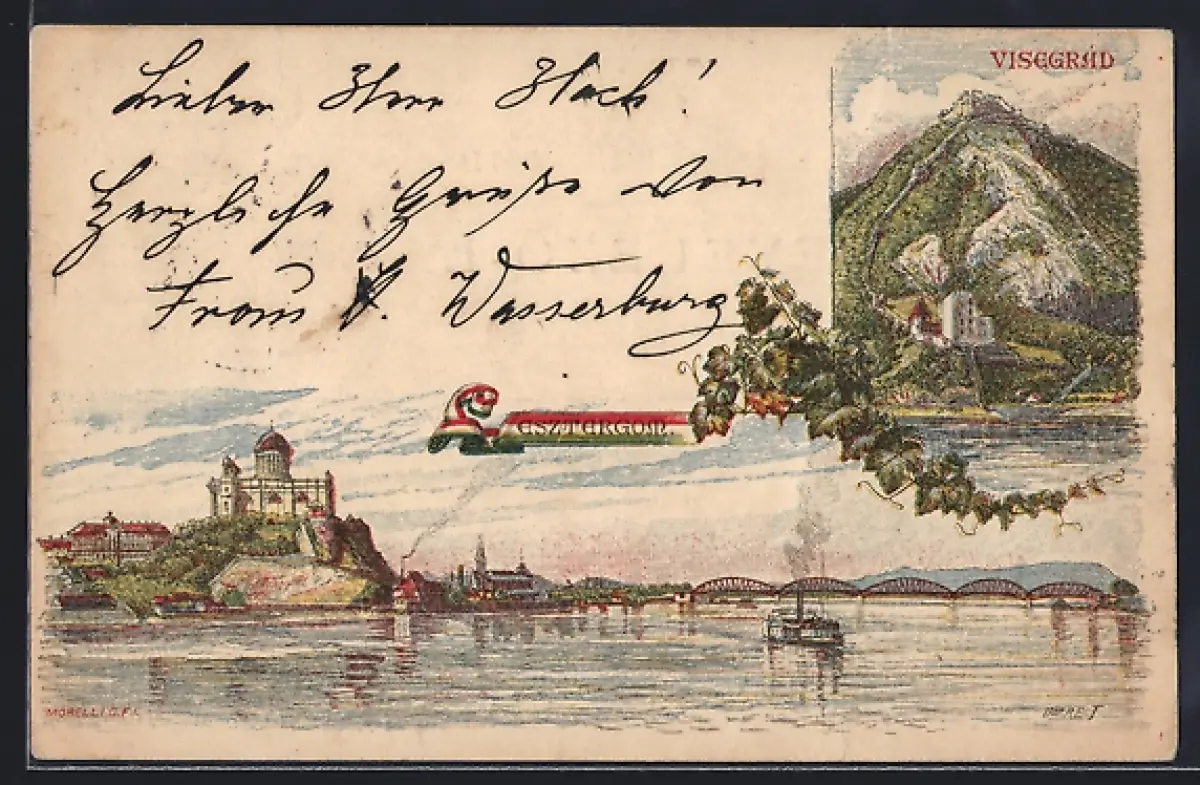 Lieber Herr Hock!
Herzliche Grüße von
Franz A. Wasserburg
VISEGRÁD
ESZTERGOM.
MORELLI G. F.